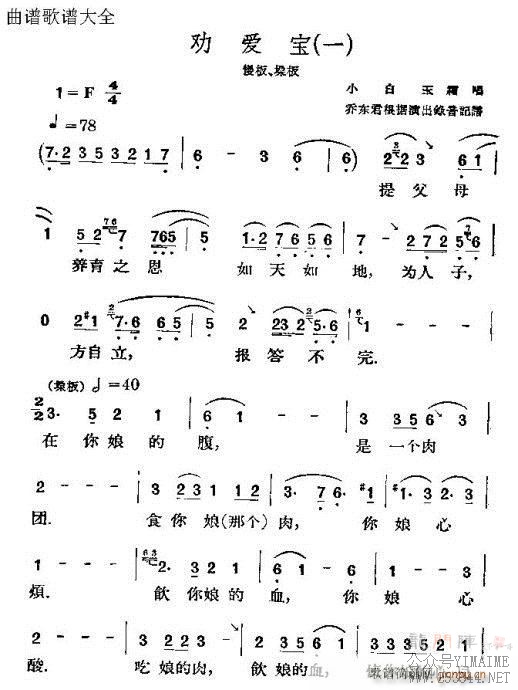 曲谱歌谱大全
劝 爱 宝(一)
慢板、垛板
1=F 4/4
小 白 玉 霜 唱
♩=78
乔东君根据演出錄音記譜
(7·2 3 5 3 2 1 7 | 6 - 3 6 | 6 - - 5) | 2 2 3 6 1
提 父 母
1 5 2 7 765 | 5 1·2 7 6 5 6 | 5 - - - | 2 7 2 5 6
养育之恩 如天如地, 为人子,
0 2 #1 7·6 6 5 | 5 2 23 2 5·6 | 1 - - -
方自立, 报答不完.
(垛板) ♩=40
2/2 3· 5 2 1 | 6 1 - - | 3 3 5 6 3
在你娘的腹, 是一个肉
2 - - - | 3 2 3 1 2 | 3· 7 6· | #1 #1 - 1
团. 食你娘(那个)肉, 你娘心
1 - - - | 2· 3 2 1 | 6 - - - | 3 3 - 2
煩. 飲你娘的血, 你娘心
3 - - - | 2 1 2 3 | 2 3 2 1 | 6
酸. 吃娘的肉, 飲娘的血,
公众号YIMAIME